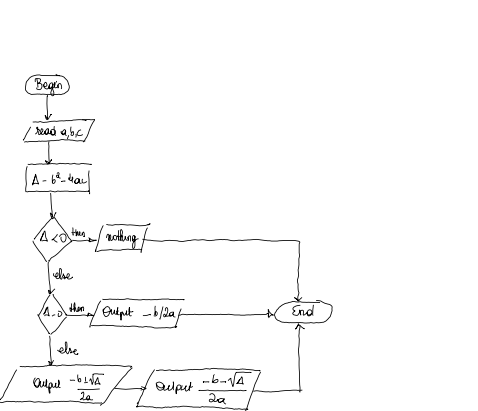 Begin
read a,b,c
Δ = b² - 4ac
Δ < 0
then
nothing
else
Δ = 0
then
Output -b/2a
End
else
Output -b+√Δ / 2a
Output -b-√Δ / 2a